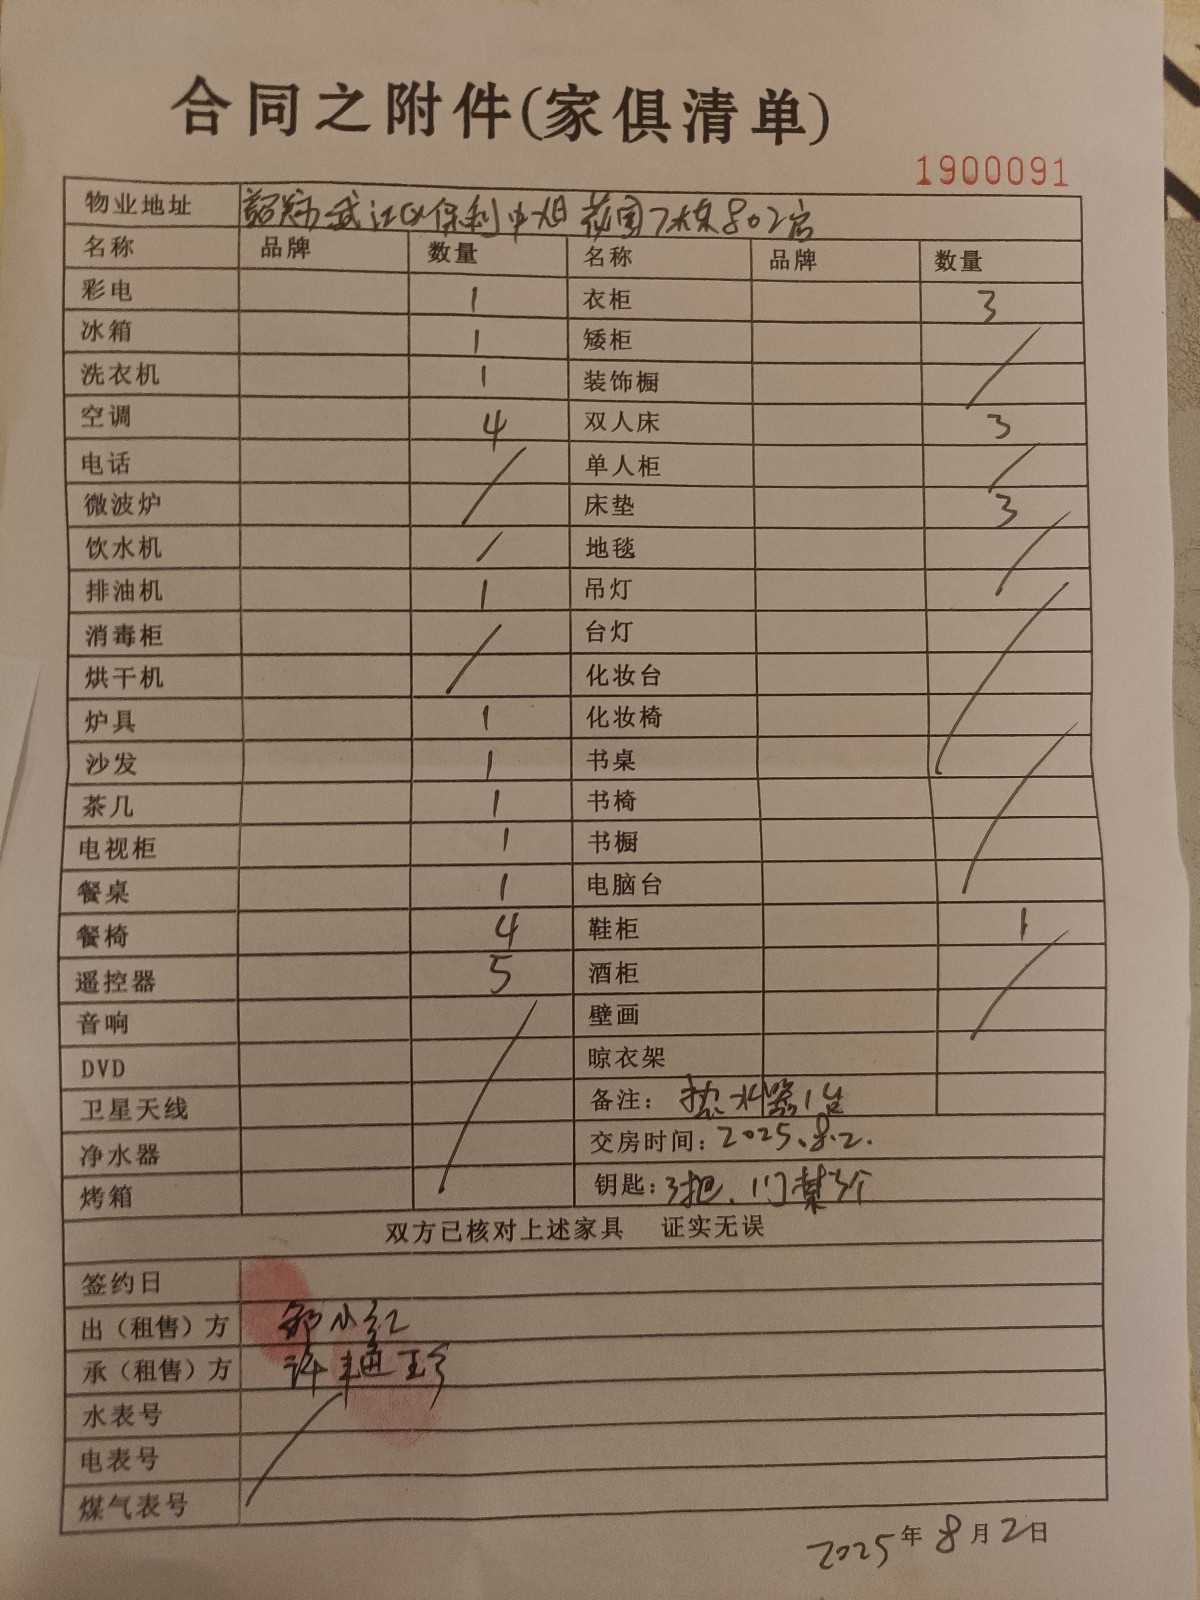 合同之附件(家俱清单)
1900091
物业地址 韶关市武江区保利中旭花园7栋802房
名称 品牌 数量 名称 品牌 数量
彩电 1 衣柜 3
冰箱 1 矮柜
洗衣机 1 装饰橱
空调 4 双人床 3
电话 单人柜
微波炉 床垫 3
饮水机 地毯
排油机 1 吊灯
消毒柜 台灯
烘干机 化妆台
炉具 1 化妆椅
沙发 1 书桌
茶几 1 书椅
电视柜 1 书橱
餐桌 1 电脑台
餐椅 4 鞋柜 1
遥控器 5 酒柜
音响 壁画
DVD 晾衣架
卫星天线 备注: 热水器1台
净水器 交房时间: 2025.8.2.
烤箱 钥匙: 3把、门禁3个
双方已核对上述家具 证实无误
签约日
出（租售）方 邹小红
承（租售）方 许
水表号
电表号
煤气表号
2025年8月2日